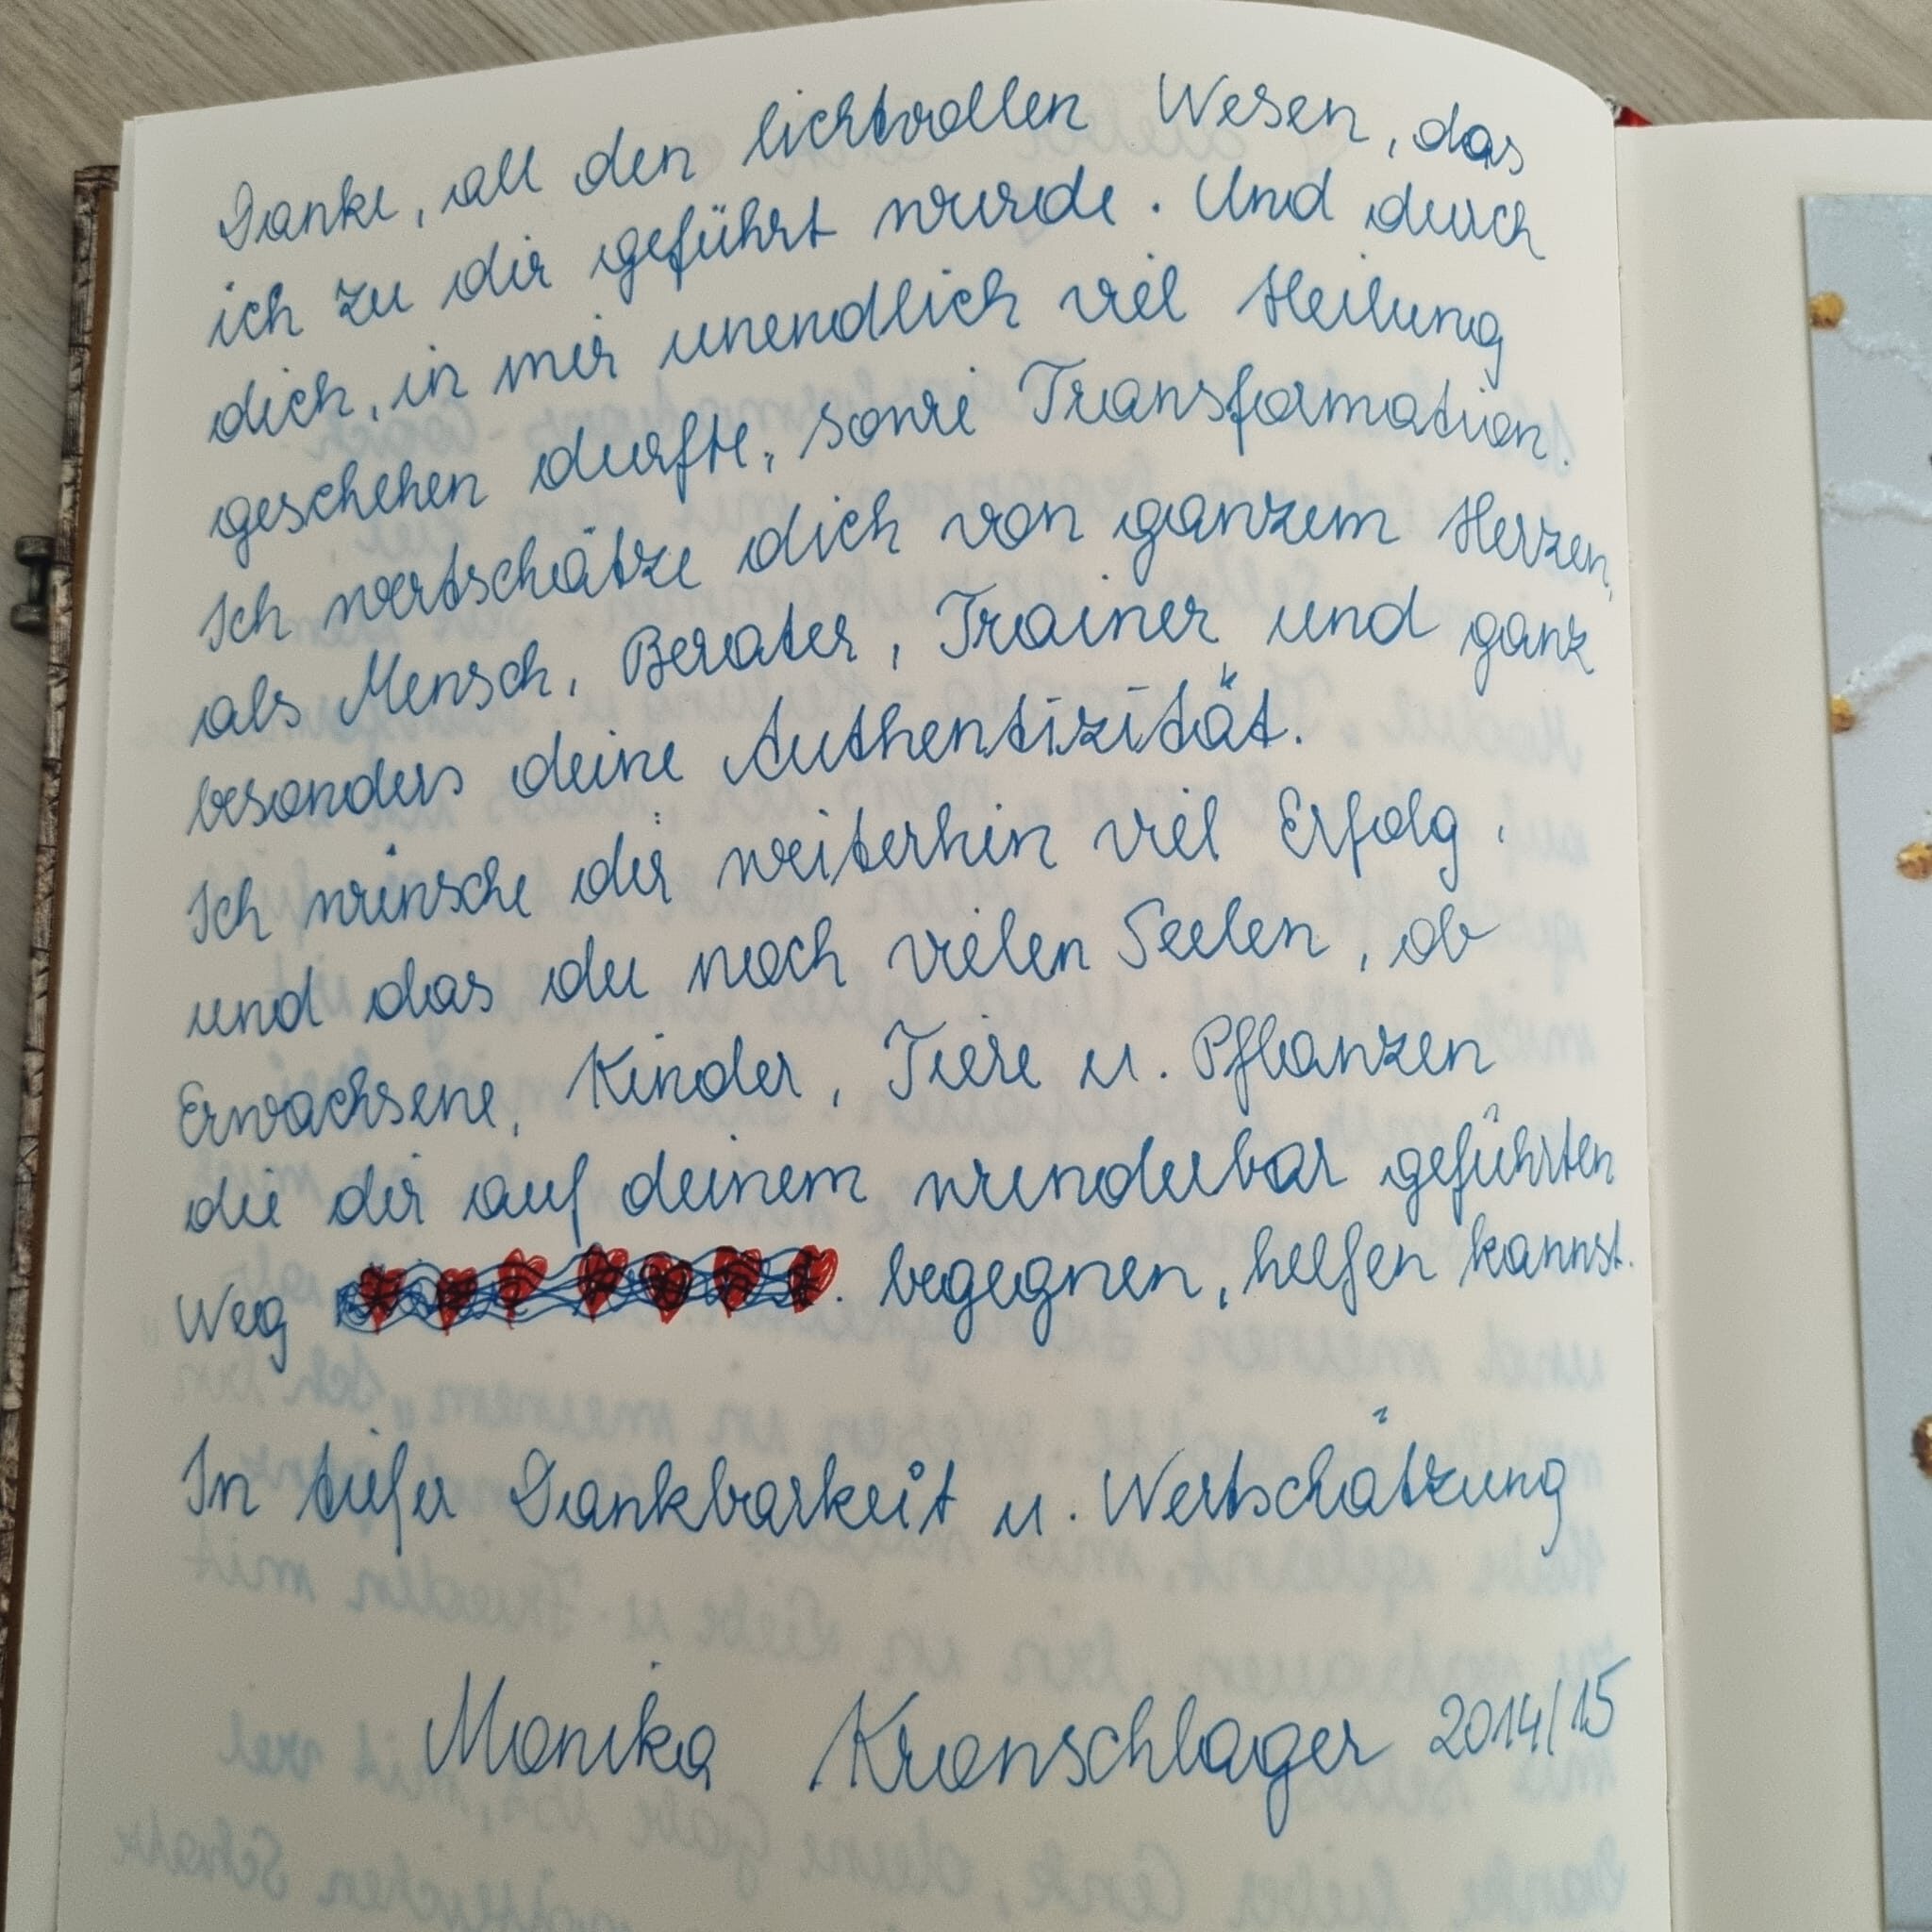 Danke, all den lichtvollen Wesen, das
ich zu dir geführt wurde. Und durch
dich, in mir unendlich viel Heilung
geschehen durfte, sowie Transformation.
Ich wertschätze dich von ganzem Herzen,
als Mensch, Berater, Trainer und ganz
besonders deine Authentizität.
Ich wünsche dir weiterhin viel Erfolg.
und das du noch vielen Seelen, ob
Erwachsene, Kinder, Tiere u. Pflanzen
die dir auf deinem wunderbar geführten
Weg begegnen, helfen kannst.
In tiefer Dankbarkeit u. Wertschätzung
Monika Kronschlager 2014/15